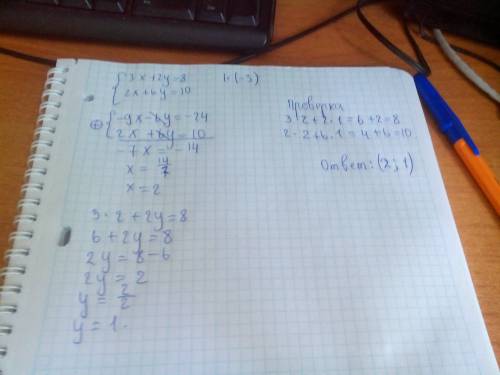 {3x+2y=8 |·(-3)
{2x+6y=10
⊕ {-9x-6y=-24
{2x+6y=10
-7x=-14
x=14/7
x=2
3·2+2y=8
6+2y=8
2y=8-6
2y=2
y=2/2
y=1.
Проверка
3·2+2·1=6+2=8
2·2+6·1=4+6=10
Ответ: (2;1)